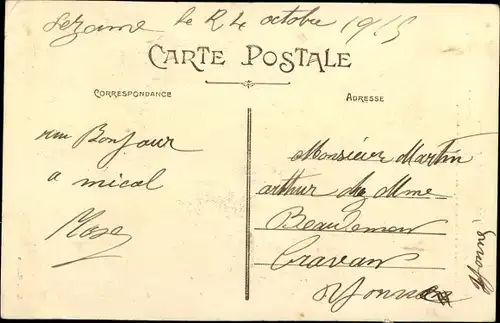 Sezanne le 24 octobre 1915
CARTE POSTALE
CORRESPONDANCE
ADRESSE
un Bonjour
a mical
Monsieur Martin
arthur chez Mme
Cravan
Yonne